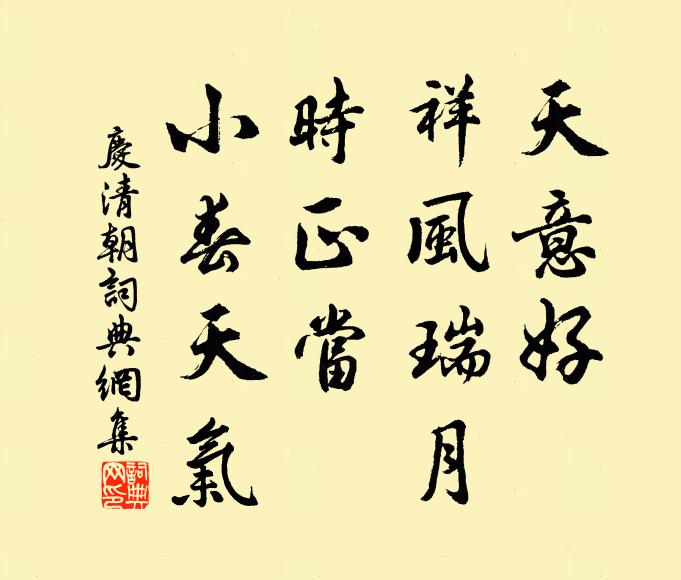 天意好
祥風瑞月
時正當
小春天氣
慶清朝詞典網集
詞典網印